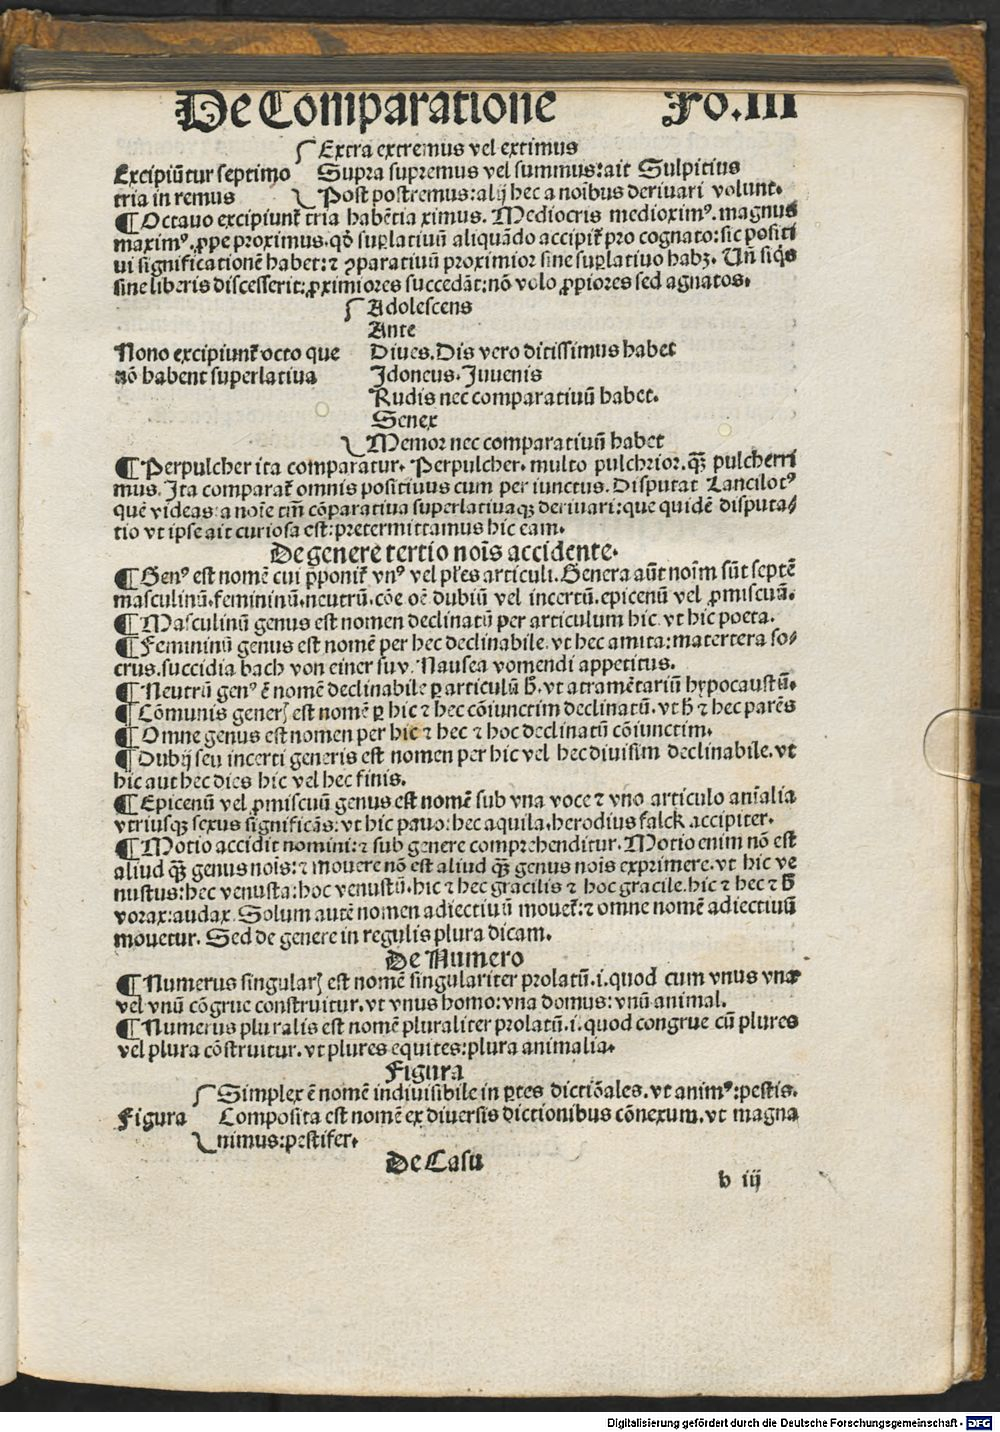 De Comparatione Fo.III
Extra extremus vel extimus
Excipiūtur septimo Supra supremus vel summus:ait Sulpitius
tria in remus Post postremus:alij hec a noībus deriuari volunt.
¶ Octauo excipiunt᷑ tria habētia ximus. Mediocris medioximꝰ. magnus
maximꝰ. ꝓpe proximus. qđ suꝑlatiuū aliquādo accipit᷑ pro cognato: sic positi
ui significationē habet: ⁊ ꝯparatiuū proximior sine suꝑlatiuo habꝫ. Uñ siq̄s
sine liberis discesserit: ꝓximiores succedāt: nō volo ꝓpiores sed agnatos.
Adolescens
Ante
Nono excipiunt᷑ octo que Diues. Dis vero ditissimus habet
nō habent superlatiua Idoneus. Iuuenis
Rudis nec comparatiuū habet.
Senex
Memor nec comparatiuū habet
¶ Perpulcher ita comparatur. Perpulcher. multo pulchrior. q̄ꝫ pulcherri
mus. Ita comparat᷑ omnis positiuus cum per iunctus. Disputat Lancilotꝰ
quē videas a noīe tm̄ cōparatiua superlatiuaqꝫ deriuari: que quidē disputa⸗
tio vt ipse ait curiosa est: pretermittamus hic eam.
De genere tertio noīs accidente.
¶ Genꝰ est nomē cui p̄ponit᷑ vnꝰ vel pl̄es articuli. Genera aūt noīm sūt septē
masculinū. femininū. neutrū. cōe oē dubiū vel incertū. epicenū vel ꝓmiscuū.
¶ Masculinū genus est nomen declinatū per articulum hic. vt hic poeta.
¶ Femininū genus est nomē per hec declinabile. vt hec amita: matertera so⸗
crus. succidia bach von einer suv. Nausea vomendi appetitus.
¶ Neutrū genꝰ ē nomē declinabile ꝑ articulū h̄. vt atramētariū hypocaustū.
¶ Cōmunis generꝭ est nomē ꝑ hic ⁊ hec cōiunctim declinatū. vt h̄ ⁊ hec parēs
¶ Omne genus est nomen per hic ⁊ hec ⁊ hoc declinatū cōiunctim.
¶ Dubij seu incerti generis est nomen per hic vel hec diuisim declinabile. vt
hic aut hec dies hic vel hec finis.
¶ Epicenū vel ꝓmiscuū genus est nomē sub vna voce ⁊ vno articulo aīalia
vtriusqꝫ sexus significās: vt hic pauo: hec aquila. herodius falck accipiter.
¶ Motio accidit nomini: ⁊ sub genere comprehenditur. Motio enim nō est
aliud q̄ꝫ genus noīs: ⁊ mouere nō est aliud q̄ꝫ genus noīs exprimere. vt hic ve
nustus: hec venusta: hoc venustū. hic ⁊ hec gracilis ⁊ hoc gracile. hic ⁊ hec ⁊ h̄
vorax: audax. Solum autē nomen adiectiuū mouet᷑: ⁊ omne nomē adiectiuū
mouetur. Sed de genere in regulis plura dicam.
De Numero
¶ Numerus singularꝭ est nomē singulariter prolatū. i. quod cum vnus vna
vel vnū cōgrue construitur. vt vnus homo: vna domus: vnū animal.
¶ Numerus pluralis est nomē pluraliter prolatū. i. quod congrue cū plures
vel plura cōstruitur. vt plures equites: plura animalia.
Figura
Simplex ē nomē indiuisibile in ꝑtes dictiōales. vt animꝰ: pestis.
Figura Composita est nomē ex diuersis dictionibus cōnexum. vt magna
nimus: pestifer.
De Casu
b iij
Digitalisierung gefördert durch die Deutsche Forschungsgemeinschaft - DFG